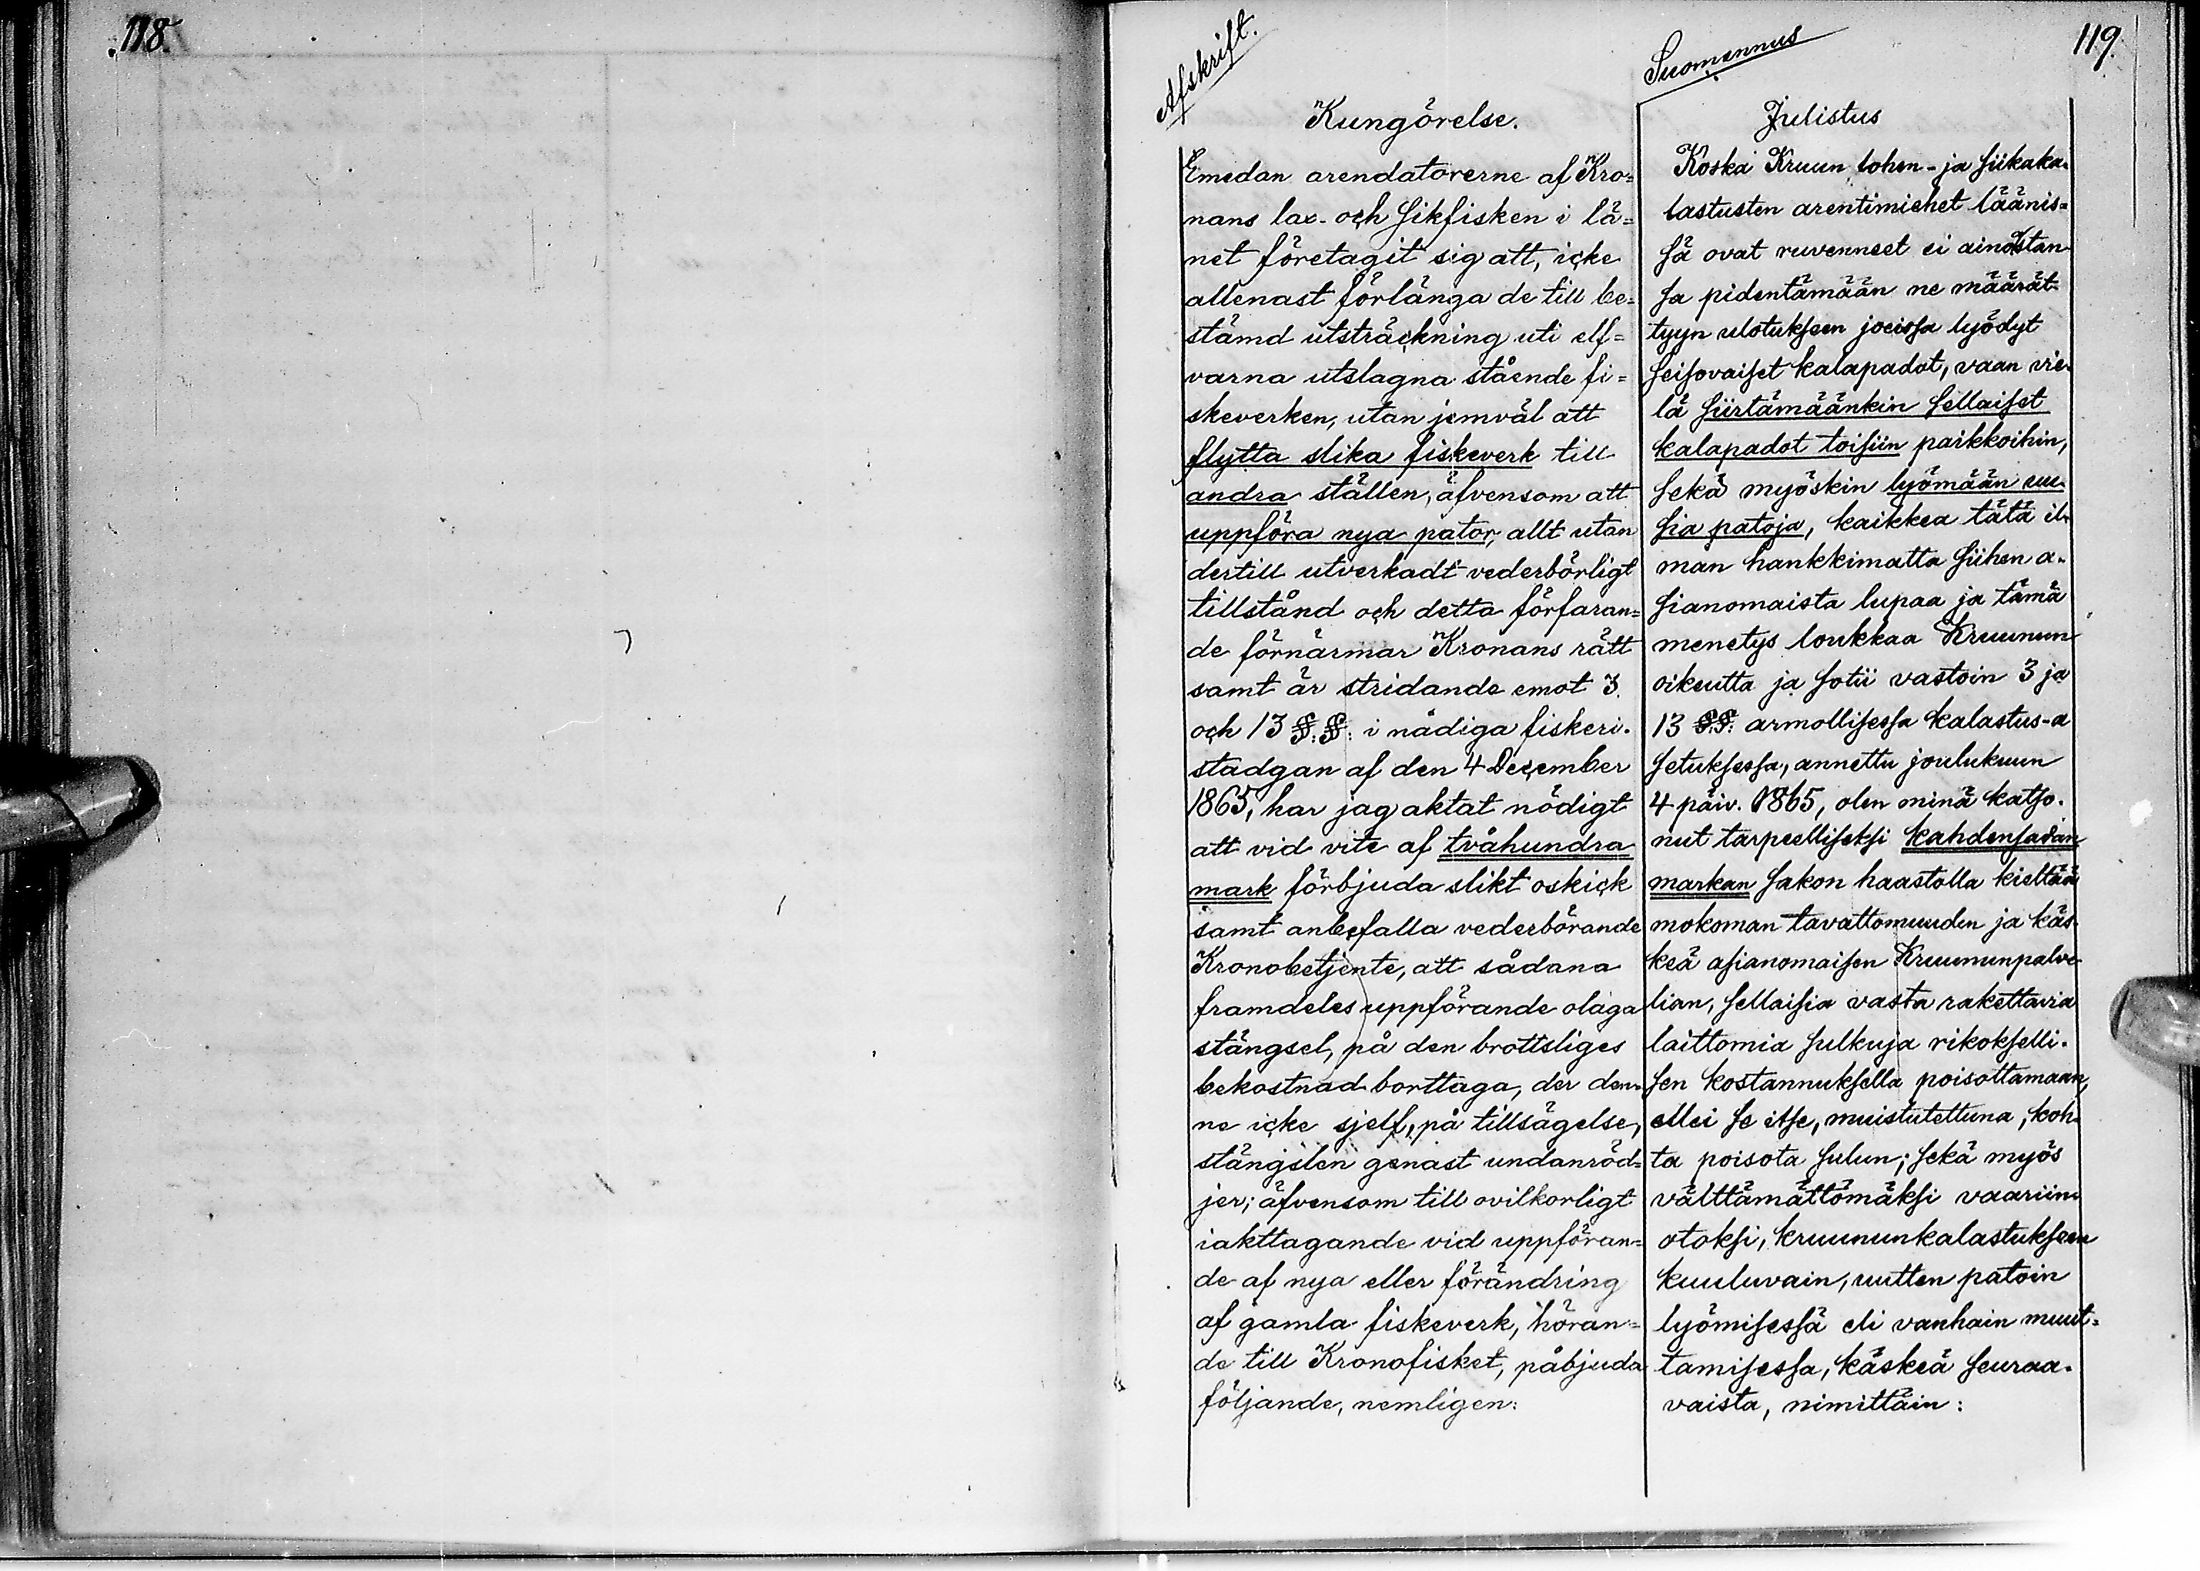 118.
119.
Afskrift.
Kungörelse.
Emedan arendatorerne af Kro=
nans lax- och sikfisken i lä=
net företagit sig att, icke
allenast förlänga de till be=
stämd utsträckning uti elf=
varna utslagna stående fi=
skeverken, utan jemväl att
flytta slika fiskeverk till
andra ställen, äfvensom att
uppföra nya pator, allt utan
dertill utverkadt vederbörligt
tillstånd och detta förfaran=
de förnärmar Kronans rätt
samt är stridande emot 3
och 13 §.§: i nådiga fiskeri-
stadgan af den 4 December
1865, har jag aktat nödigt
att vid vite af tvåhundra
mark förbjuda slikt oskick
samt anbefalla vederbörande
Kronobetjente, att sådana
framdeles uppförande olaga
stängsel, på den brottsliges
bekostnad borttaga, der den-
ne icke sjelf, på tillsägelse,
stängslen genast undanröd=
jer; äfvensom till ovilkorligt
iakttagande vid uppföran=
de af nya eller förändring
af gamla fiskeverk, höran=
de till Kronofisket, påbjuda
följande, nemligen:
Suomennus
Julistus
Koska Kruun lohen- ja siikaka-
lastusten arentimiehet läänis=
sä ovat ruvenneet ei ainoastan-
sa pidentämään ne määrät-
tyyn ulotukseen joeissa lyödyt
seisovaiset kalapadot, vaan vie-
lä siirtämäänkin sellaiset
kalapadot toisiin paikkoihin,
sekä myöskin lyömään uu-
sia patoja, kaikkea tätä il-
man hankkimatta siihen a-
sianomaista lupaa ja tämä
menetys loukkaa Kruunun
oikeutta ja sotii vastoin 3 ja
13 §§: armollisessa kalastus-a
setuksessa, annettu joulukuun
4 päiv. 1865, olen minä katso-
nut tarpeelliseksi kahdensadan
markan sakon haastolla kieltää
mokoman tavattomuuden ja käs-
keä asianomaisen Kruununpalve-
lian, sellaisia vasta rakettavia
laittomia sulkuja rikokselli-
sen kostannuksella poisottamaan,
ellei se itse, muistutettuna, koh-
ta poisota sulun; sekä myös
välttämättömäksi vaariin-
otoksi, kruununkalastukseen
kuuluvain, uutten patoin
lyömisessä eli vanhain muut=
tamisessa, käskeä seuraa-
vaista, nimittäin: